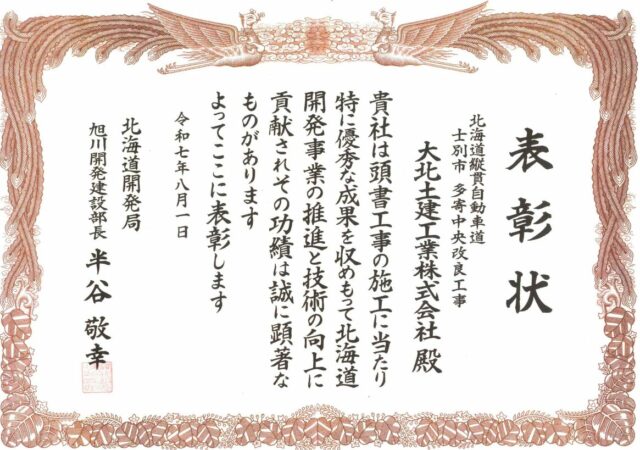 表彰状
北海道縦貫自動車道
士別市 多寄中央改良工事
大北土建工業株式会社 殿
貴社は頭書工事の施工に当たり
特に優秀な成果を収めもって北海道
開発事業の推進と技術の向上に
貢献されその功績は誠に顕著な
ものがあります
よってここに表彰します
令和七年八月一日
北海道開発局
旭川開発建設部長 半谷敬幸